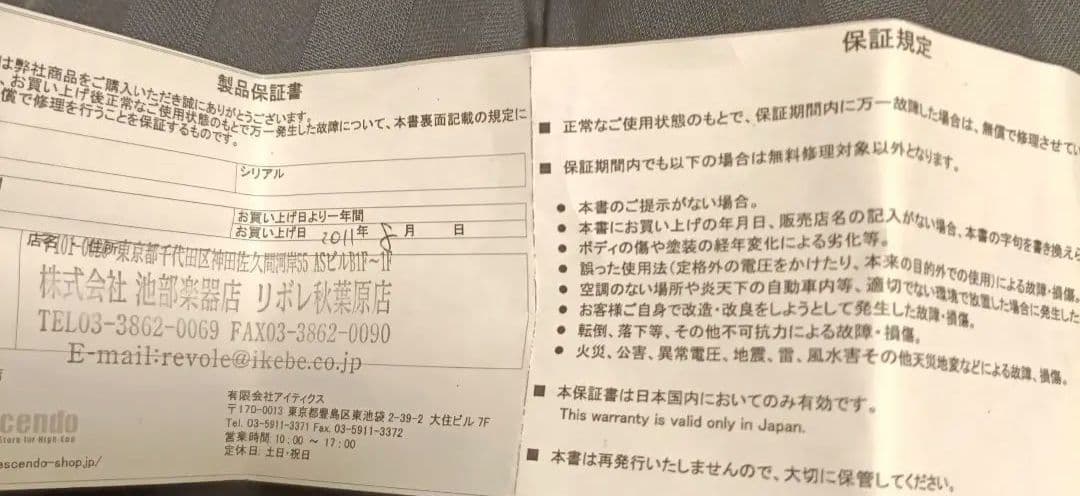 製品保証書
は弊社商品をご購入いただき誠にありがとうございます。
、お買い上げ後正常なご使用状態のもとで万一発生した故障について、本書裏面記載の規定に
償で修理を行うことを保証するものです。
シリアル
お買い上げ日より一年間
お買い上げ日 2011年 8月 日
店名
東京都千代田区神田佐久間河岸55 ASビルB1F~1F
株式会社 池部楽器店 リボレ秋葉原店
TEL03-3862-0069 FAX03-3862-0090
E-mail:revole@ikebe.co.jp
有限会社アイティクス
〒170-0013 東京都豊島区東池袋 2-39-2 大住ビル 7F
Tel. 03-5911-3371 Fax. 03-5911-3372
営業時間 10:00 ~ 17:00
定休日: 土日・祝日
scendo
Store for High-End
escendo-shop.jp/
保証規定
■ 正常なご使用状態のもとで、保証期間内に万一故障した場合は、無償で修理させてい
■ 保証期間内でも以下の場合は無料修理対象以外となります。
● 本書のご提示がない場合。
● 本書にお買い上げの年月日、販売店名の記入がない場合、本書の字句を書き換えら
● ボディの傷や塗装の経年変化による劣化等。
● 誤った使用法(定格外の電圧をかけたり、本来の目的外での使用)による故障・損傷。
● 空調のない場所や炎天下の自動車内等、適切でない環境で放置した場合に発生した
● お客様ご自身で改造・改良をしようとして発生した故障・損傷。
● 転倒、落下等、その他不可抗力による故障・損傷。
● 火災、公害、異常電圧、地震、雷、風水害その他天災地変などによる故障、損傷。
■ 本保証書は日本国内においてのみ有効です。
This warranty is valid only in Japan.
■ 本書は再発行いたしませんので、大切に保管してください。